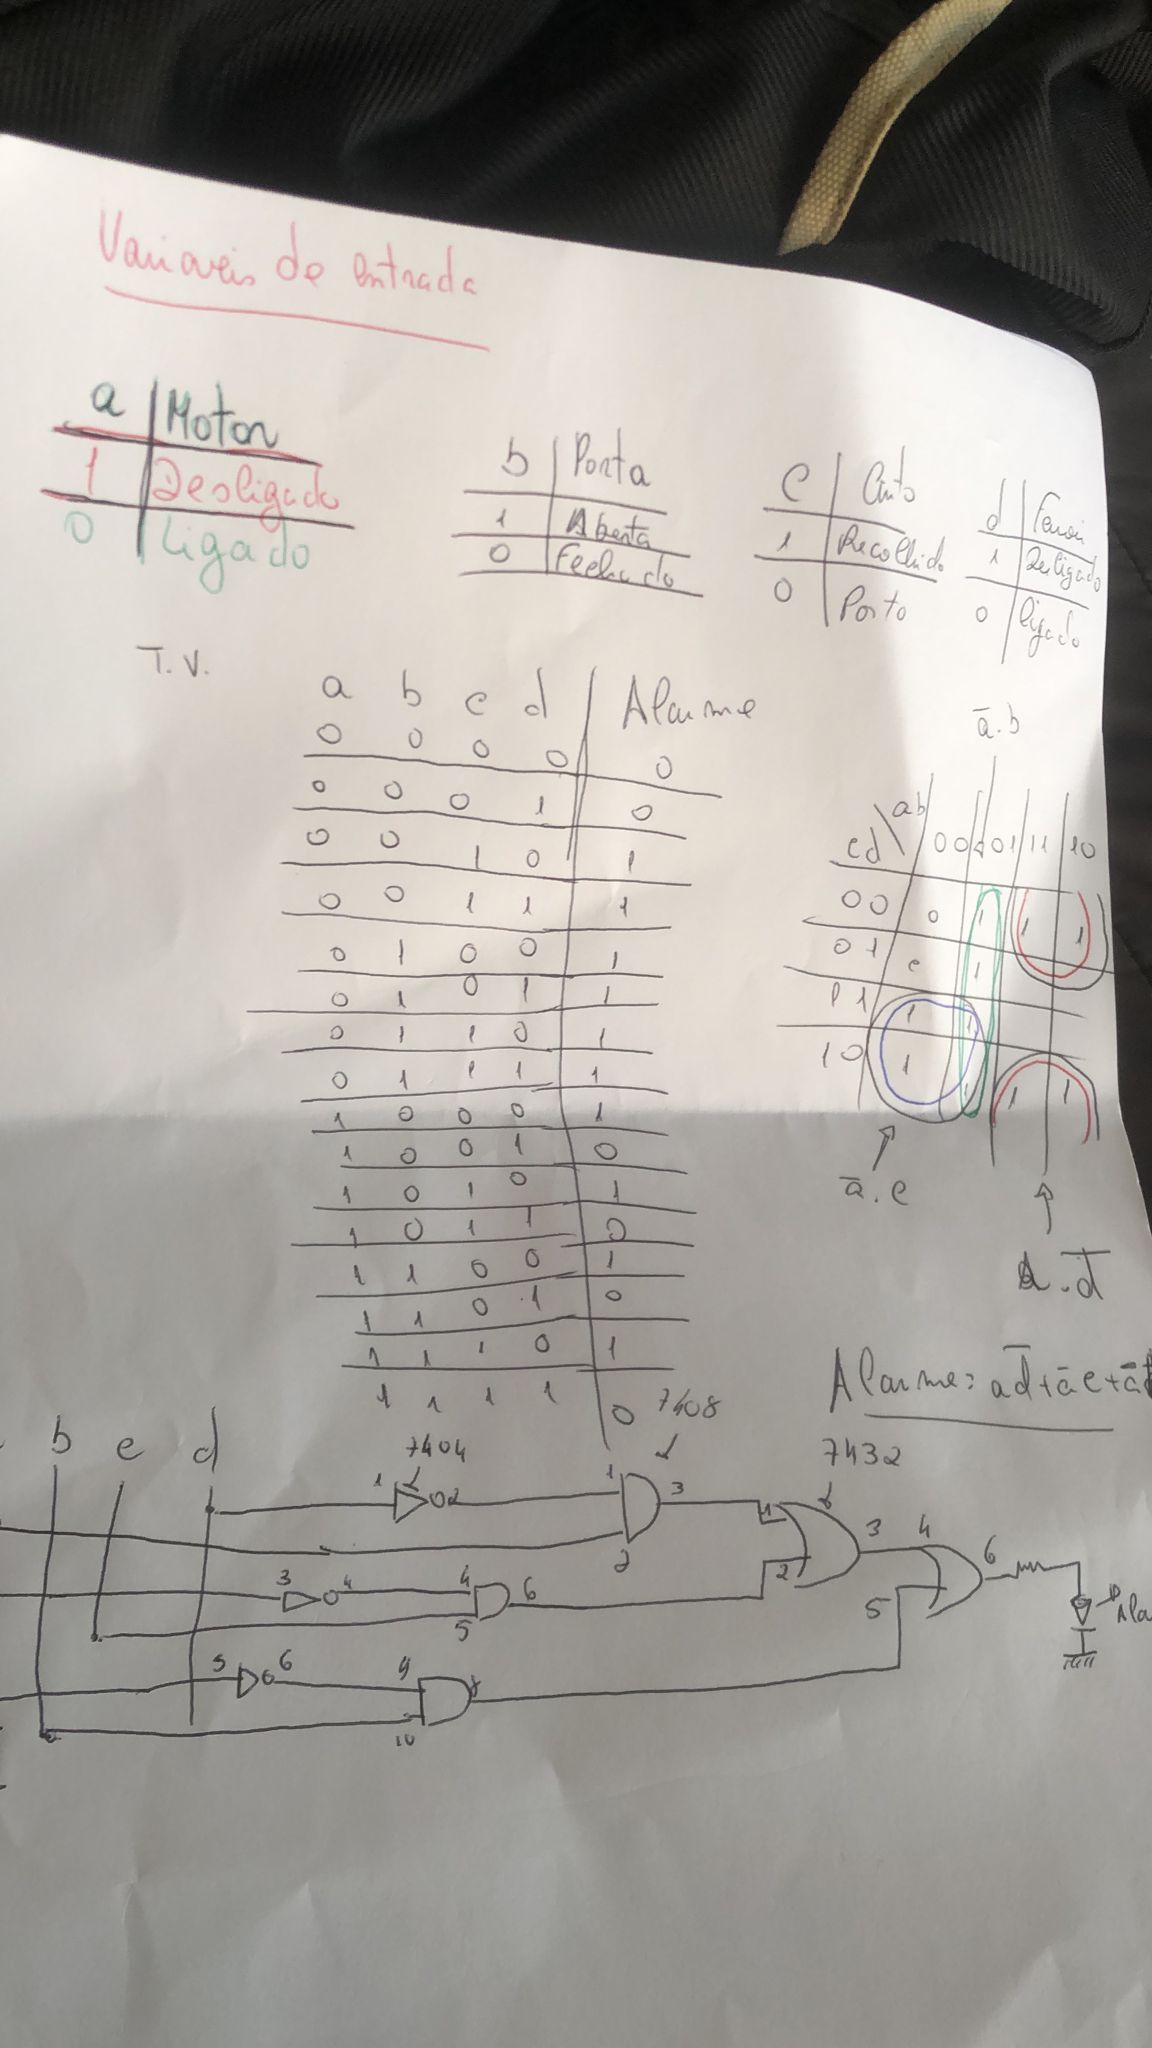 Variaveis de entrada
a Motor
1 Desligado
0 Ligado
b Porta
1 Aberta
0 Fechado
c Cinto
1 Recolhido
0 Posto
d Farois
1 Desligado
0 ligado
T.V.
a b c d Alarme
0 0 0 0 0
0 0 0 1 0
0 0 1 0 1
0 0 1 1 1
0 1 0 0 1
0 1 0 1 1
0 1 1 0 1
0 1 1 1 1
1 0 0 0 1
1 0 0 1 0
1 0 1 0 1
1 0 1 1 0
1 1 0 0 1
1 1 0 1 0
1 1 1 0 1
1 1 1 1 0
ā.b
cd \ ab 00 01 11 10
00 0 1 1 1
01 0 1
11 1 1
10 1 1 1
ā.c
a.d̅
Alarme= ad̅+āc+ā
b c d
7404
7408
7432
1 2 1 2 3 1 2 3 4 5 6
3 4 4 5 6
5 6 9 10 8